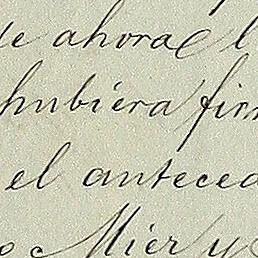 de ahora el
hubiera fir
el anteced
Mier y